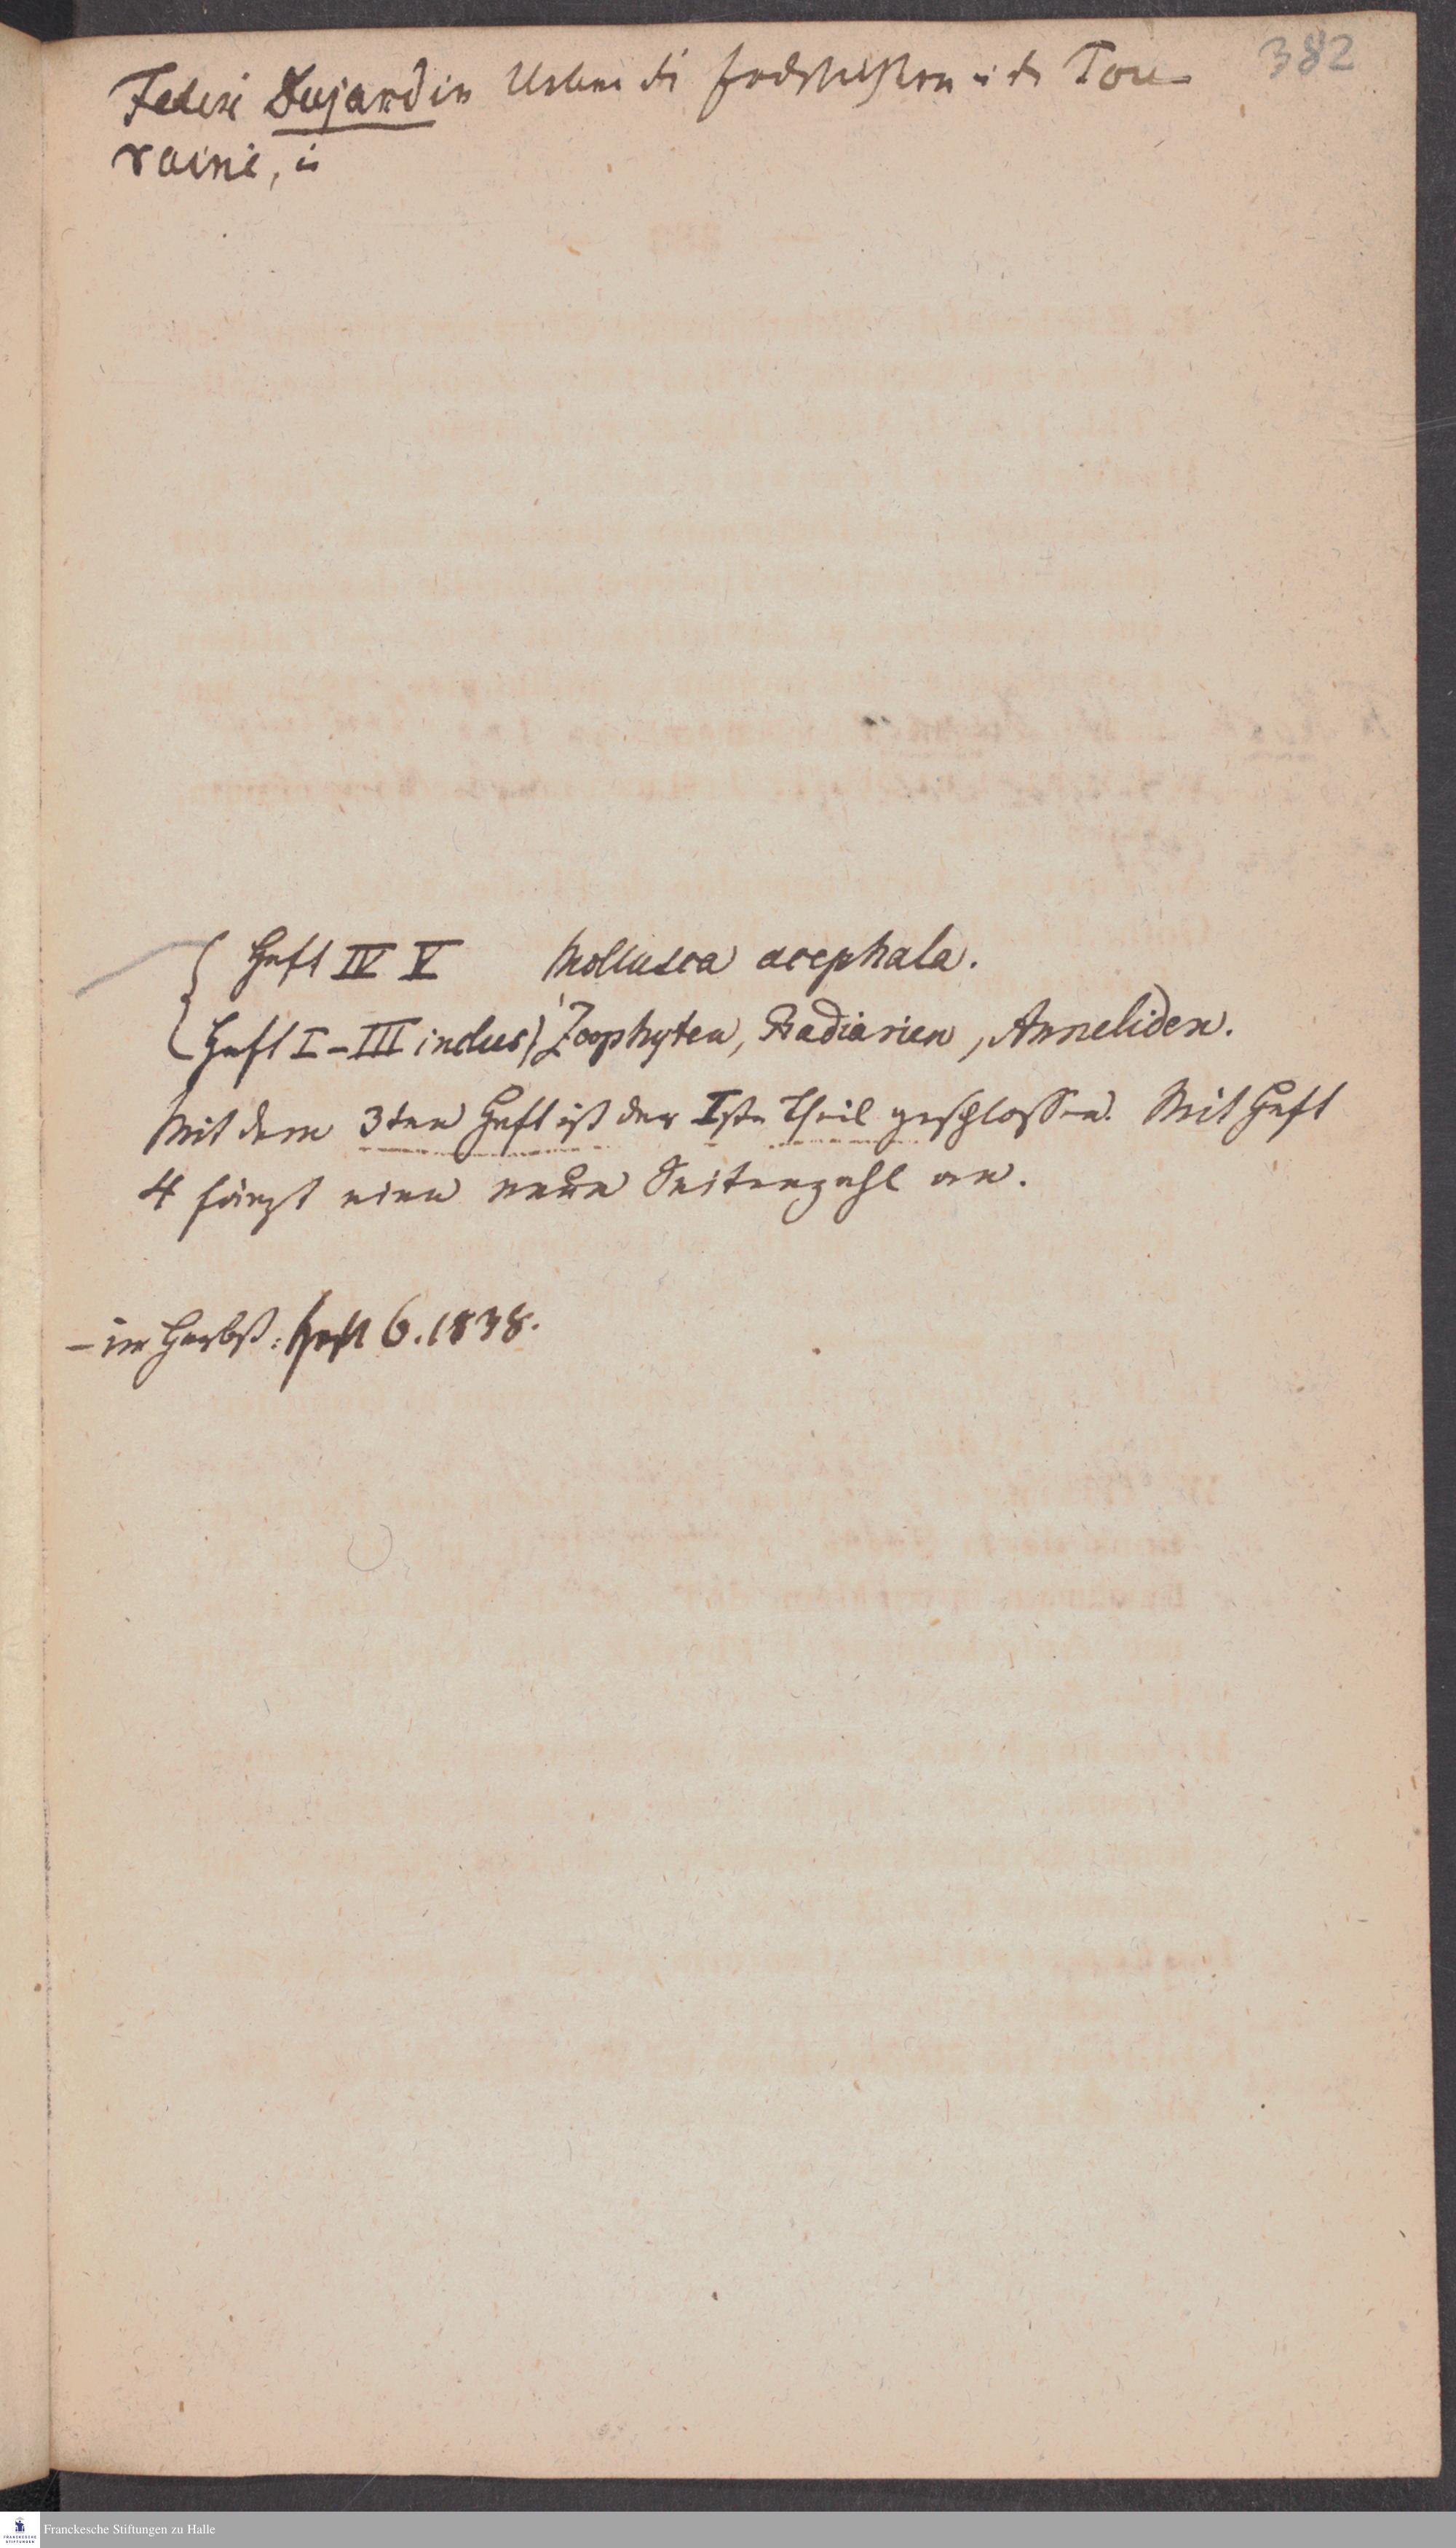 382
Felix Dujardin Ueber die Erdschichten in der Tou-
raine, in
Heft IV V Mollusca acephala.
Heft I-III inclus) Zoophyten, Radiarien, Anneliden.
Mit dem 3ten Heft ist der Iste Theil geschlossen. Mit Heft
4 fängt eine neue Seitenzahl an.
- im Herbst: Heft 6. 1838.
Franckesche Stiftungen zu Halle